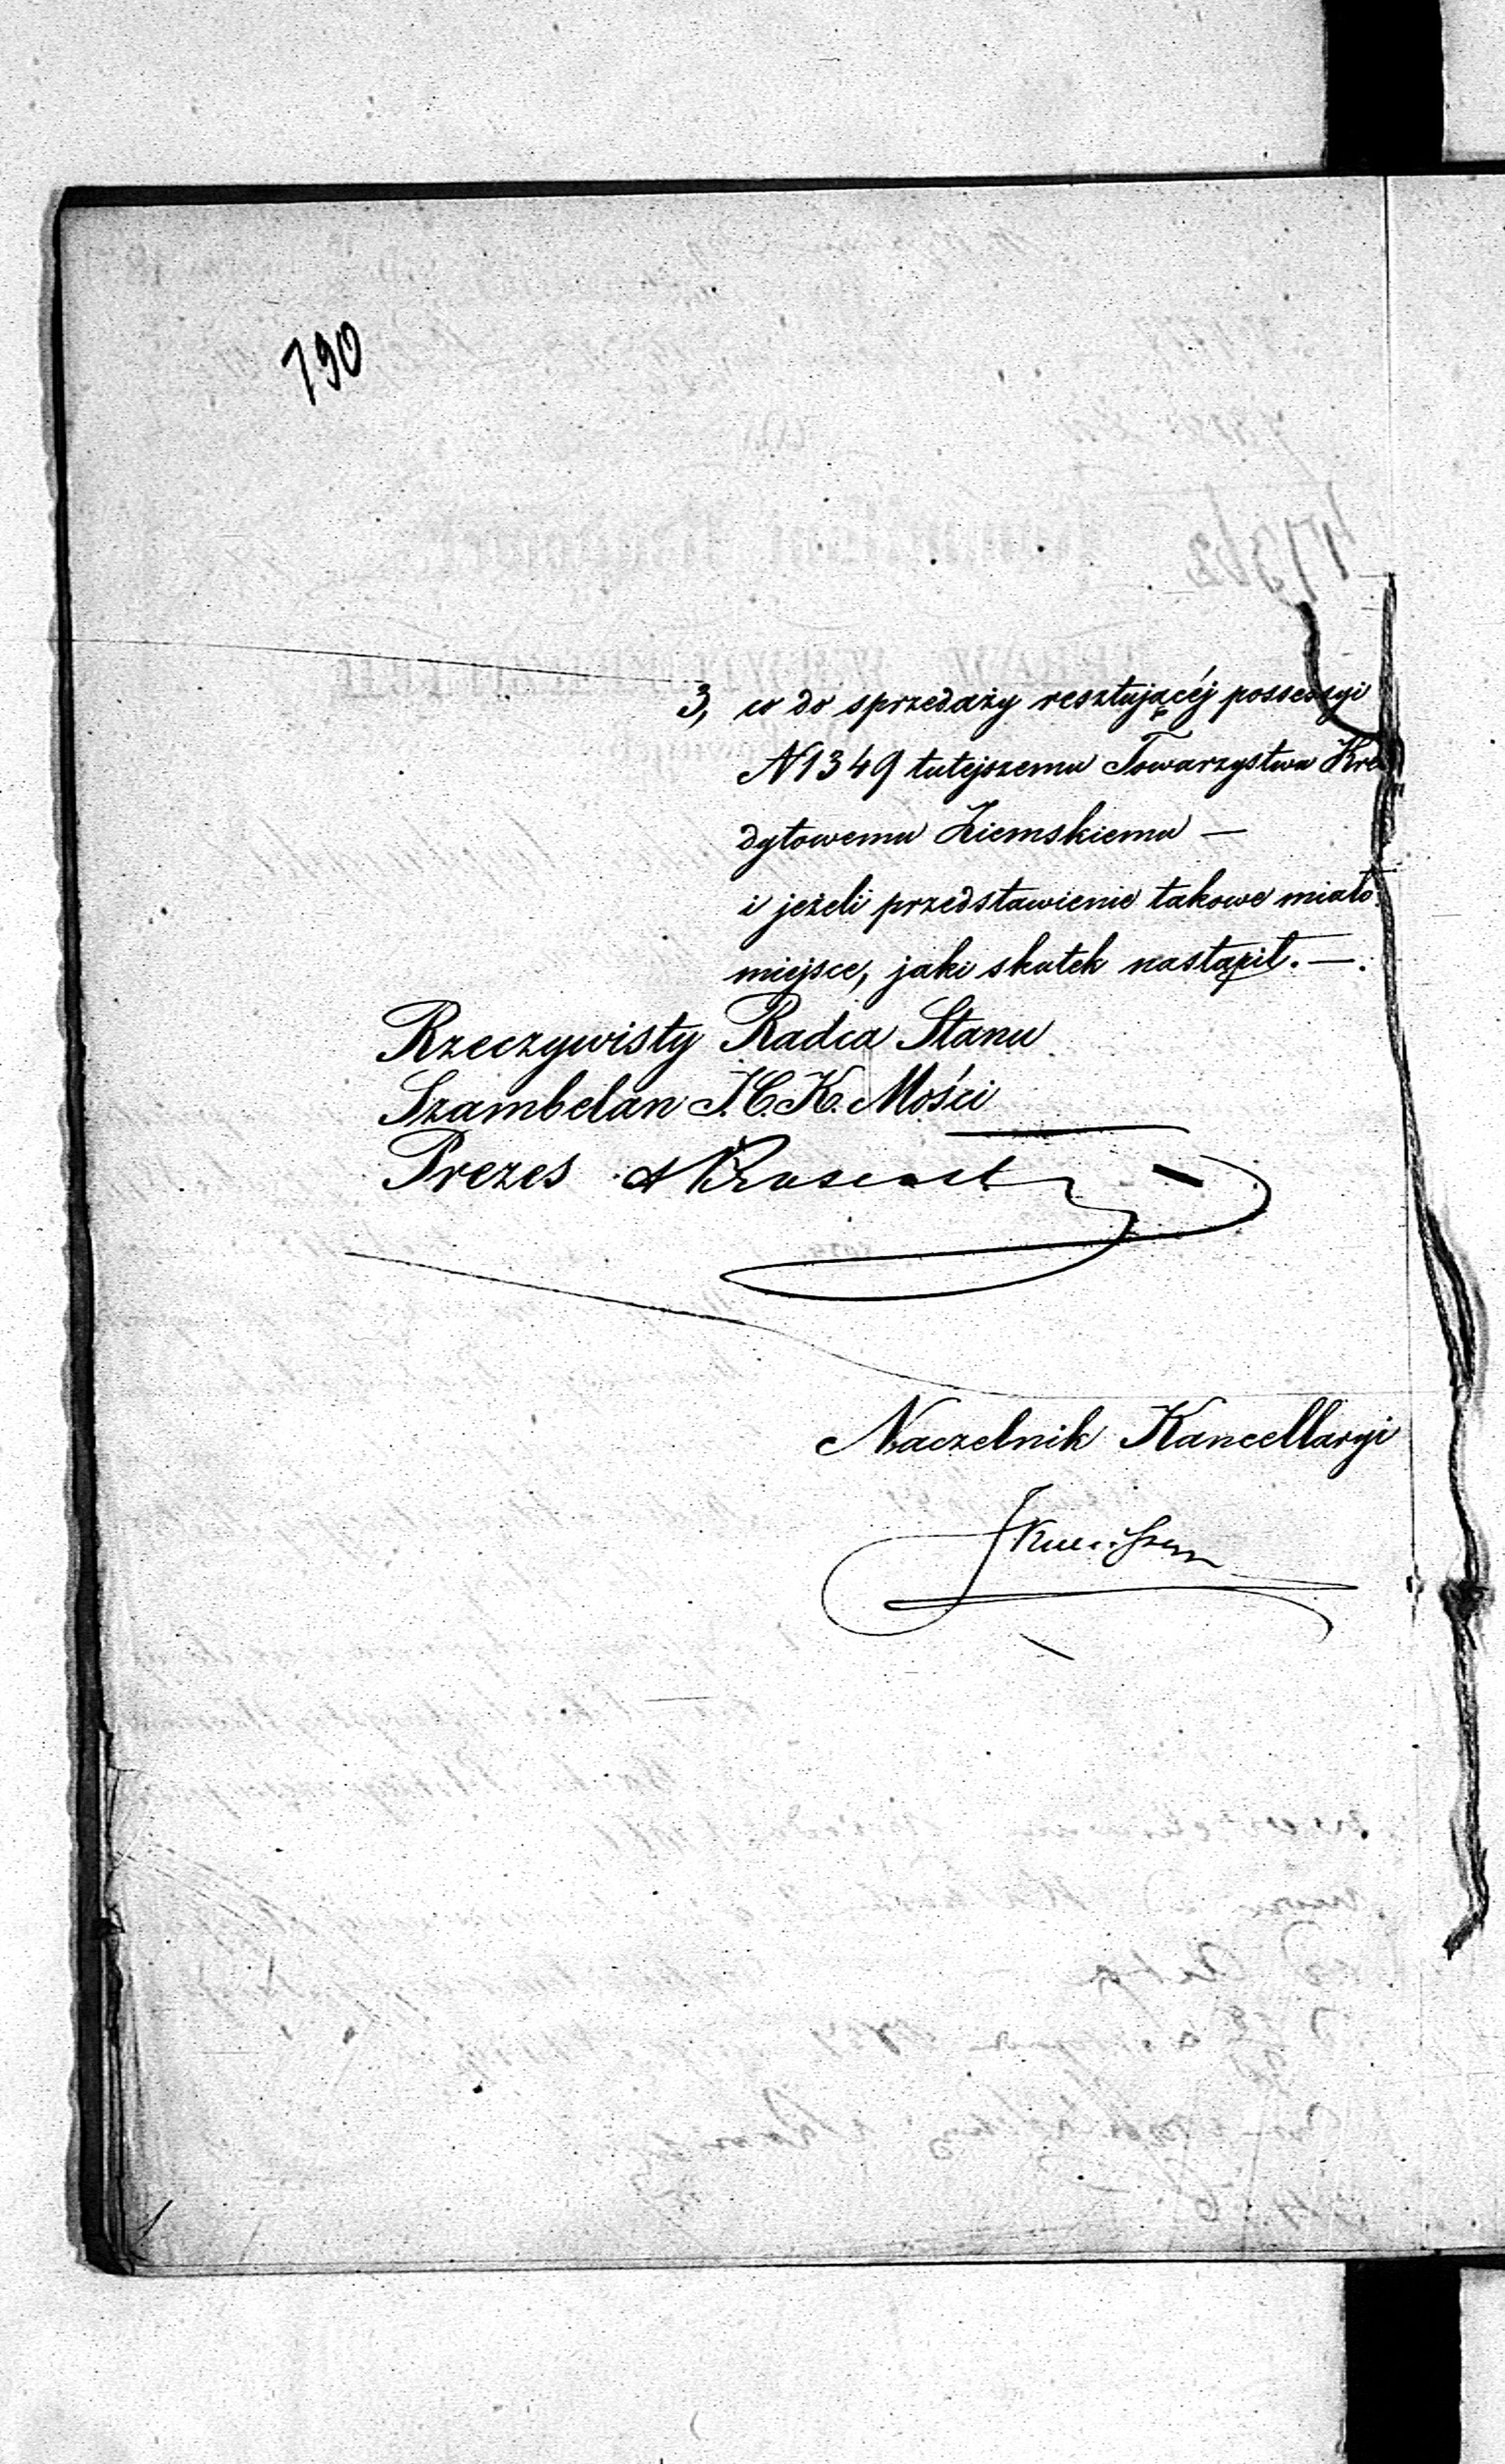 190
3, co do sprzedaży resztującéj possessyi
N 1349 tutejszemu Towarzystwu Kre
dytowemu Ziemskiemu —
i jeżeli przedstawienie takowe miało
miejsce, jaki skutek nastąpił. —.
Rzeczywisty Radca Stanu
Szambelan J.C.K. Mości
Prezes
Naczelnik Kancellaryi